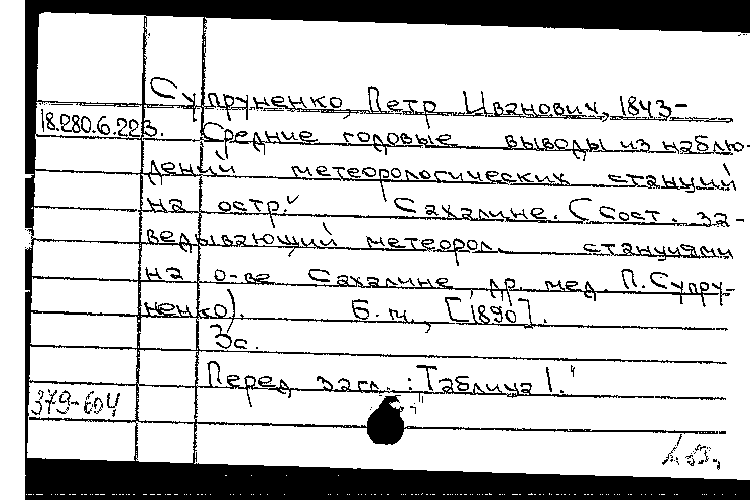 Супруненко, Петр Иванович, 1843-
18.280.6.223. Средние годовые выводы из наблю-
дений метеорологических станций
на остр. Сахалине. (Сост. за-
ведывающий метеорол. станциями
на о-ве Сахалине, др. мед. П. Супру-
ненко). Б. м., [1890].
3с.
Перед загл.: Таблица 1.
379-604